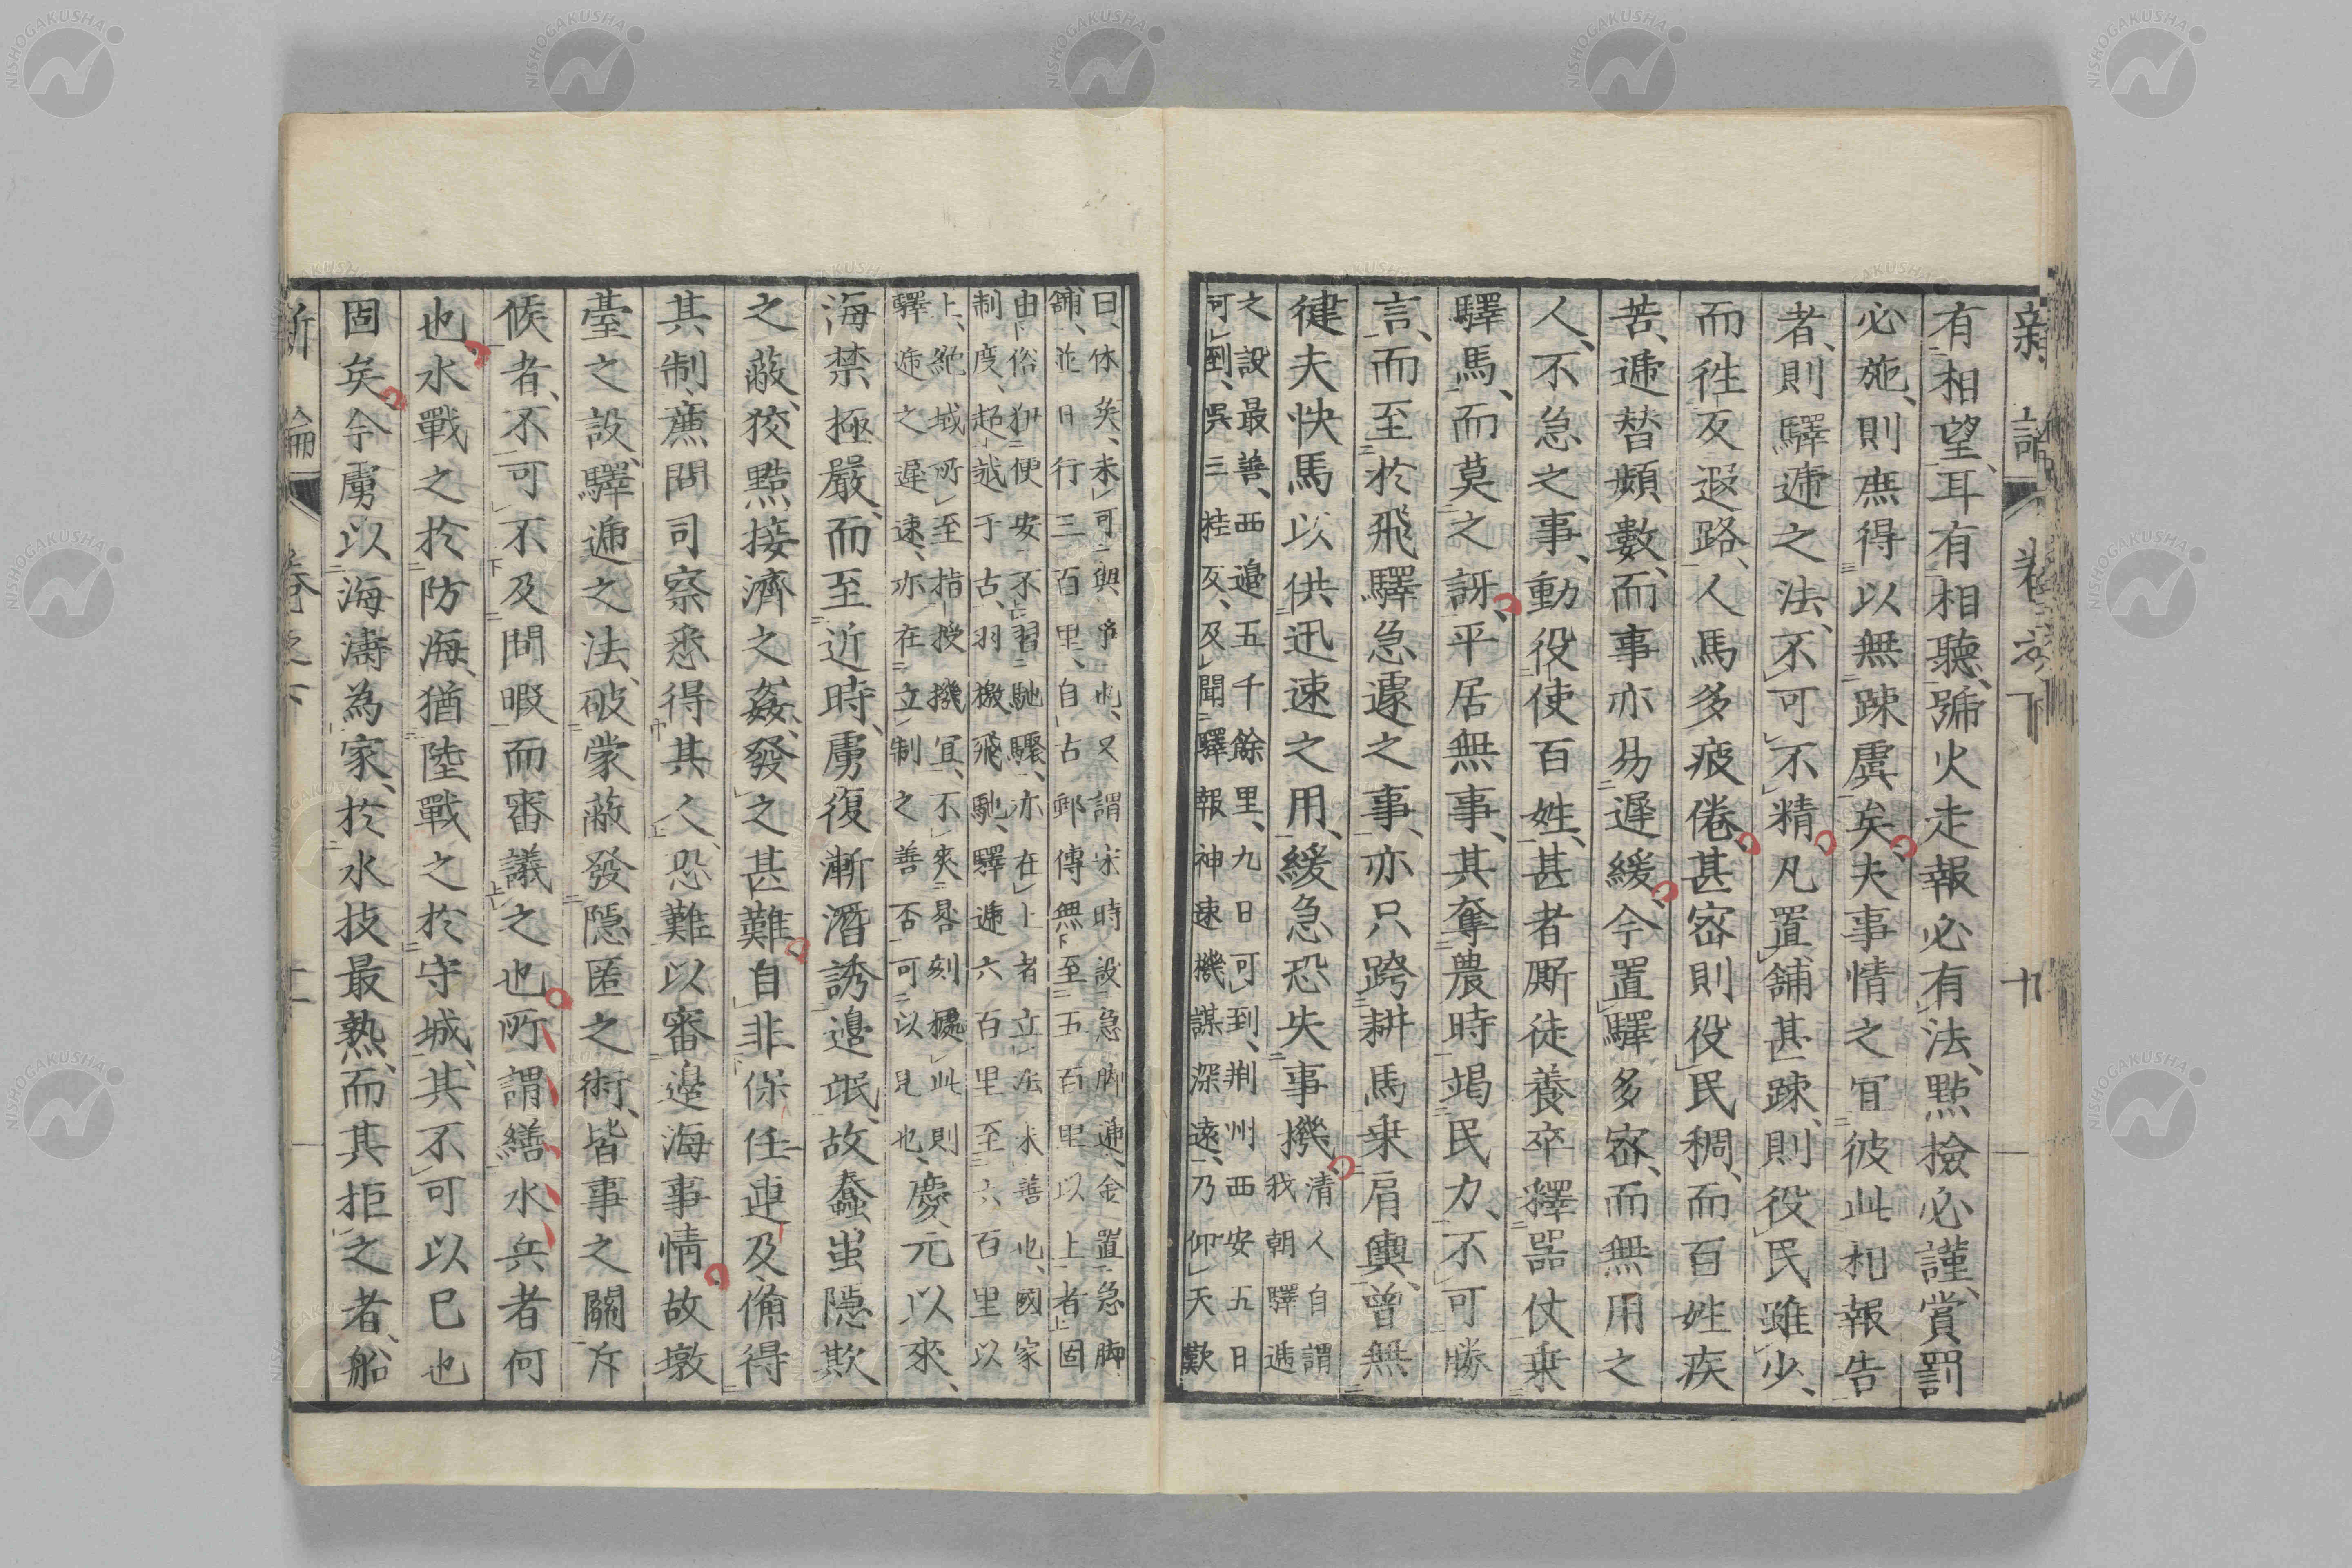 新論 卷之下 十
有相望、耳有相聽、號火走報必有法、點撿必謹、賞罰
必施、則庶得以無踈虞矣、夫事情之冝彼此相報告
者、則驛遞之法、不可不精、凡置舖甚踈、則役民雖少、
而徃反遐路、人馬多疲倦、甚宻則役民稠、而百姓疾
苦、遞替頻數、而事亦易遲緩、今置驛多宻、而無用之
人、不急之事、動役使百姓、甚者厮徒養卒釋器仗乗
驛馬、而莫之訝、平居無事、其奪農時竭民力、不可勝
言、而至於飛驛急遽之事、亦只跨耕馬乗肩輿、曾無
健夫快馬以供迅速之用、緩急恐失事機、清人自謂我朝驛遞
之設最善、西邊五千餘里、九日可到、荆州西安五日
可到、吳三桂反、及聞驛報神速機謀深遠、乃仰天歎
曰、休矣、未可與爭也、又謂宋時設急脚遞、金置急脚
舖、並日行三百里、自古郵傳無至五百里以上者固
由俗狃便安不習馳驟、亦在上者立法未善也、國家
制度、超越于古、羽檄飛馳、驛遞六百里至六百里以
上、絶域所至指授機冝、不爽晷刻據此則
驛遞之遲速、亦在立制之善否可以見也、慶元以來、
海禁極嚴、而至近時、虜復漸潛誘邊氓、故蠢蚩隱欺
之蔽、狡黠接濟之姦、發之甚難、自非保任連及、備得
其制、廉問司察悉得其人、恐難以審邊海事情、故墩
臺之設、驛遞之法、破蒙蔽發隱匿之術、皆事之關斥
候者、不可不及間暇而審議之也、所謂繕水兵者何
也、水戰之於防海、猶陸戰之於守城、其不可以已也
固矣、今虜以海濤為家、於水技最熟、而其拒之者、船
新論 卷之下 十一